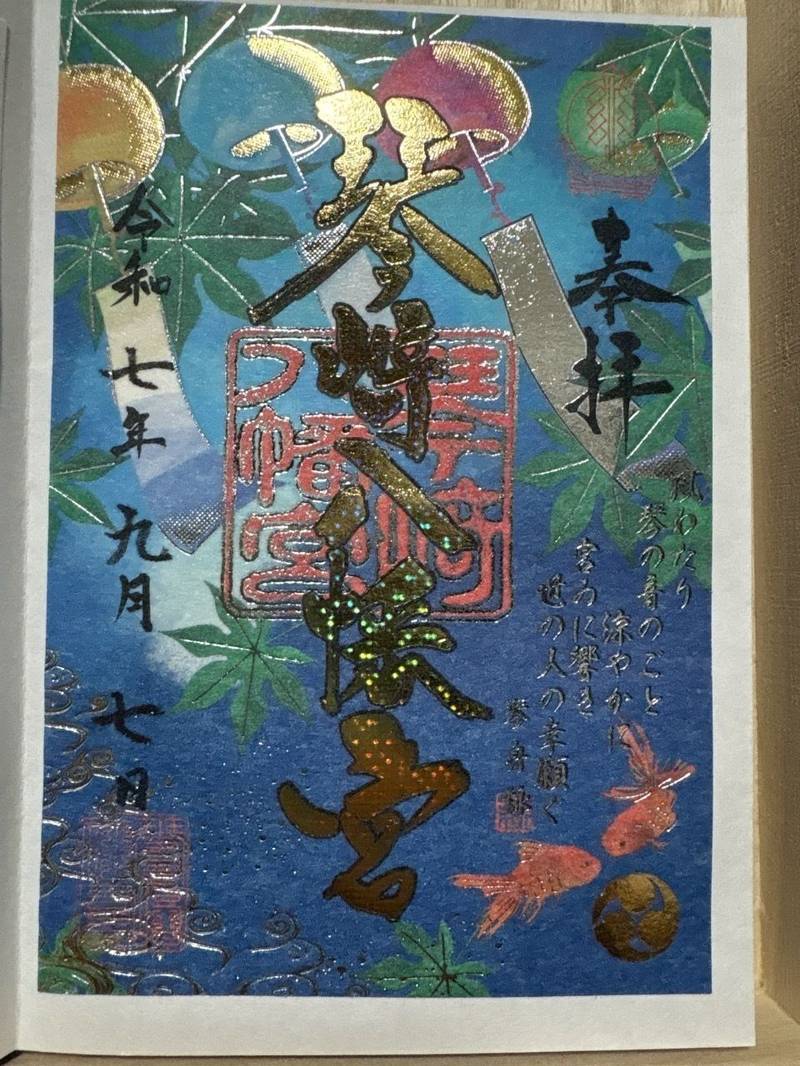 奉拝
風わたり
琴の音のごと
涼やかに
に響き
の人の幸願ぐ
琴崎八幡宮
琴崎八幡宮
令和七年九月七日